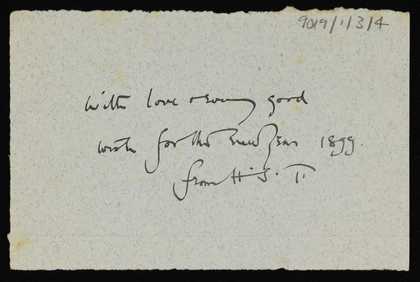 9019/1/3/4
with love & every good
wish for the New Year 1899.
from H. S. T.